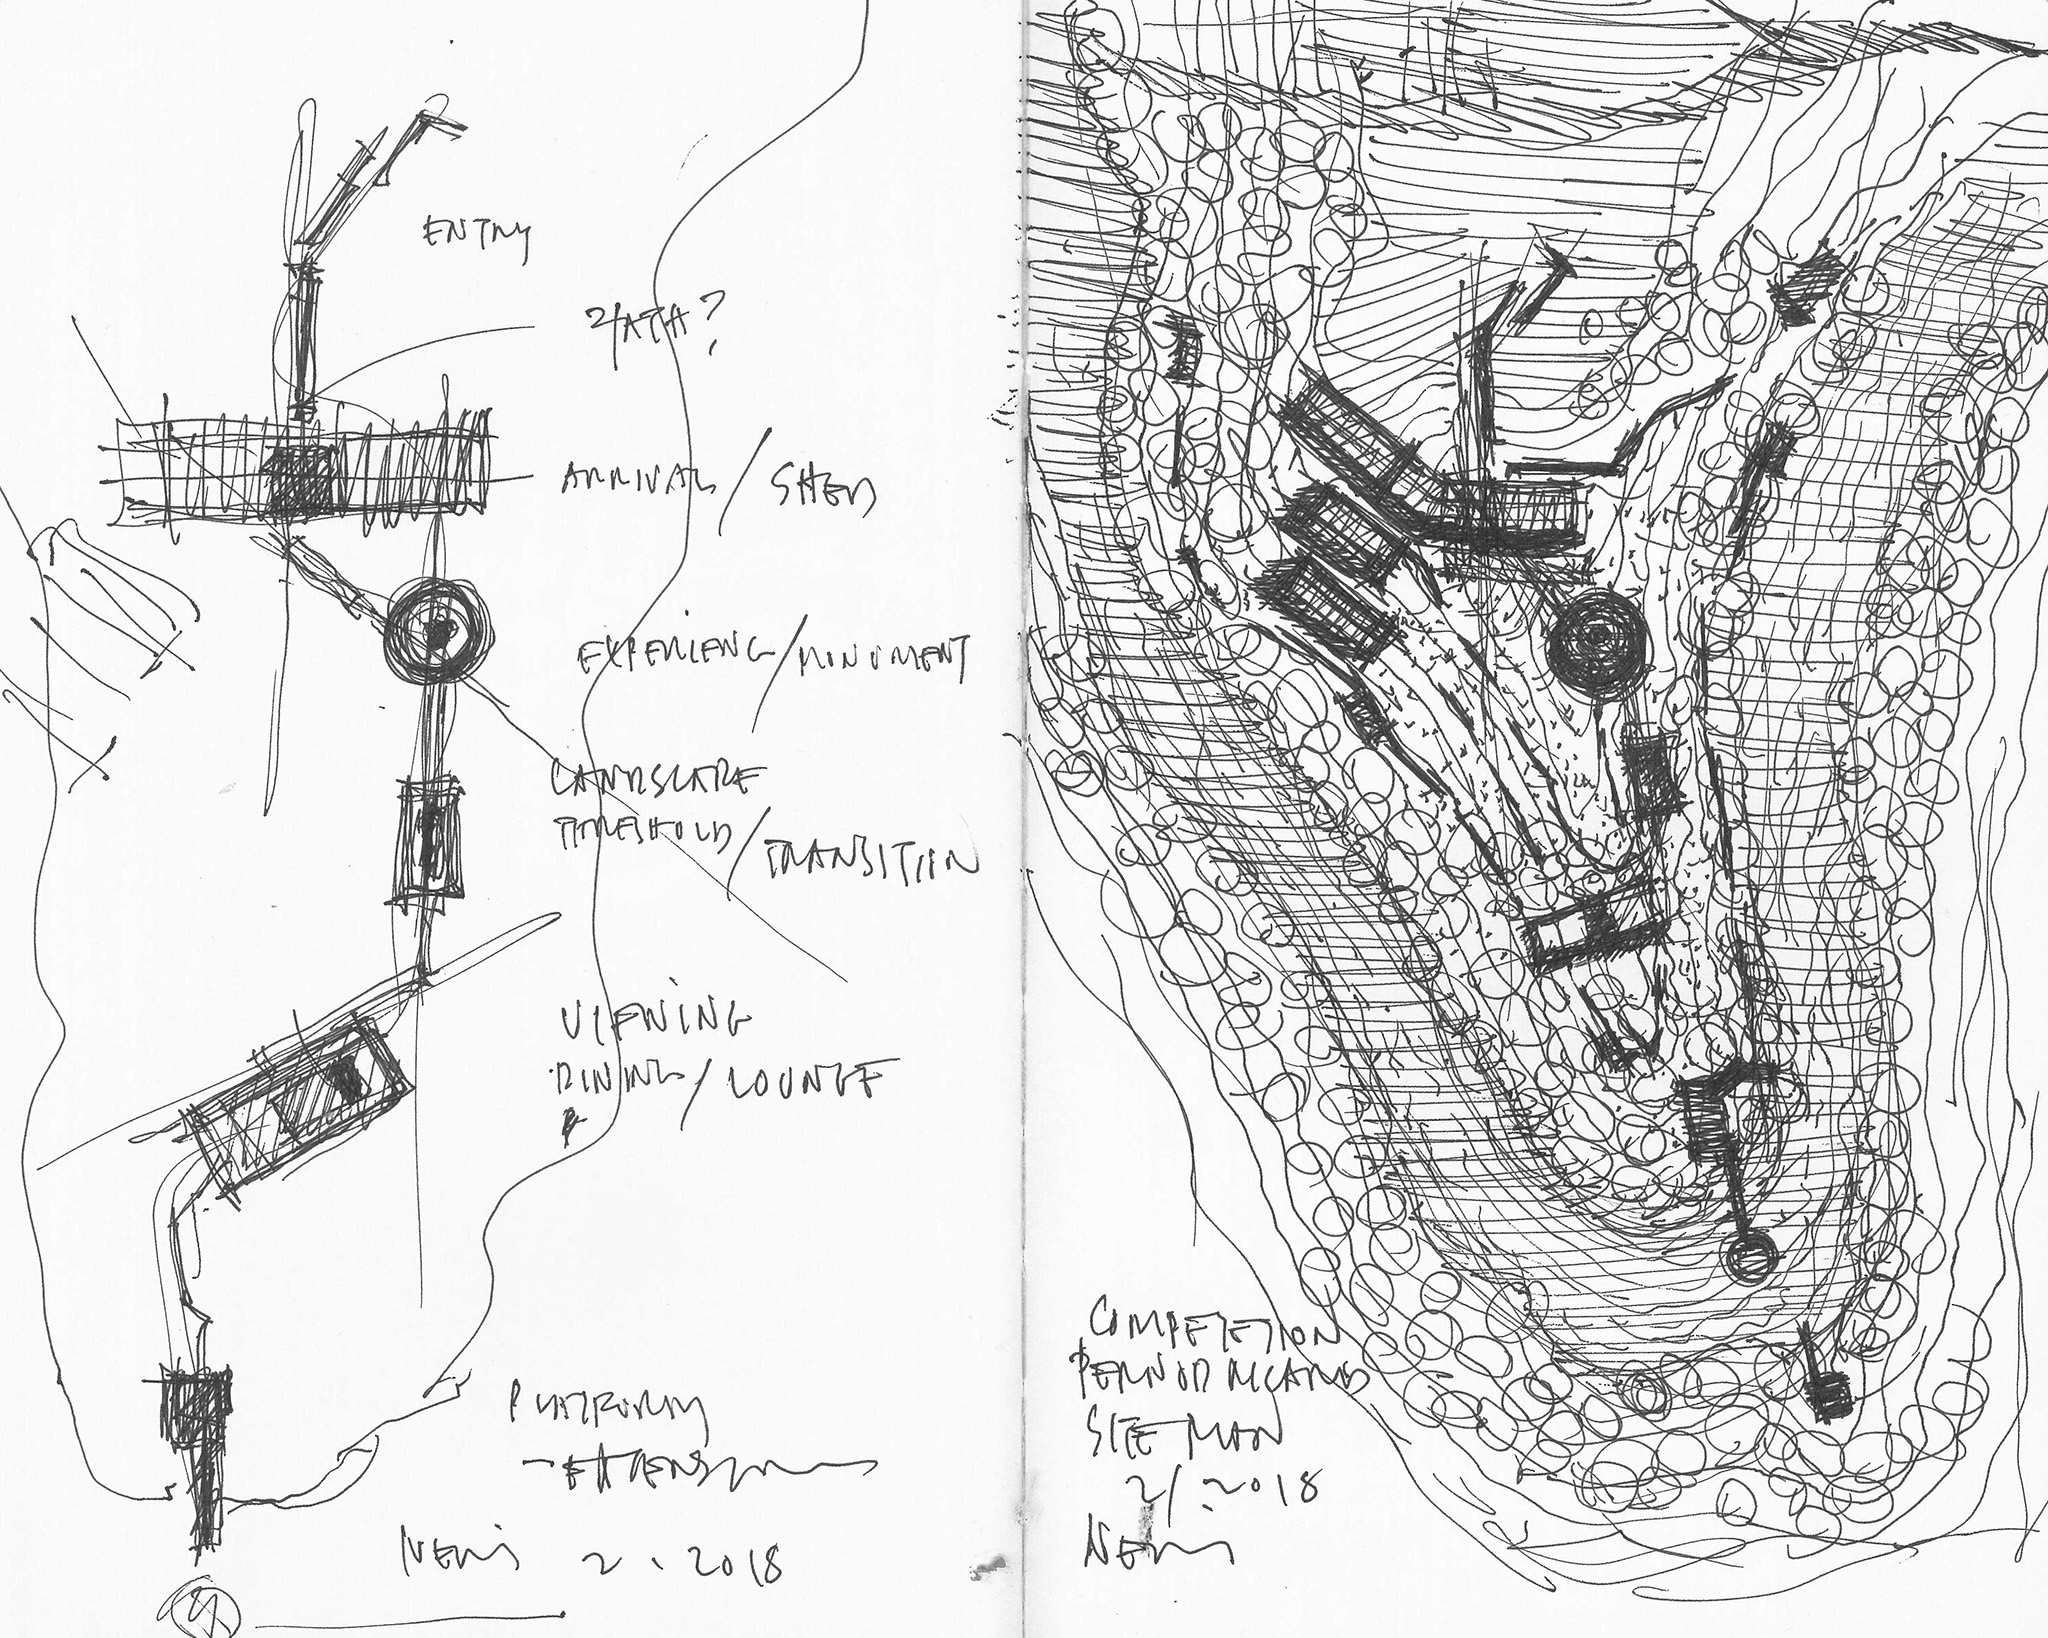 ENTRY
PATH?
ARRIVAL / SHED
EXPERIENC / MONUMENT
LANDSCAPE
THRESHOLD / TRANSITION
VIEWING
DINING / LOUNGE
PLATFORM
- EXTENSION
2.2018
COMPETETION
PERIOD
SITE PLAN
2/.2018